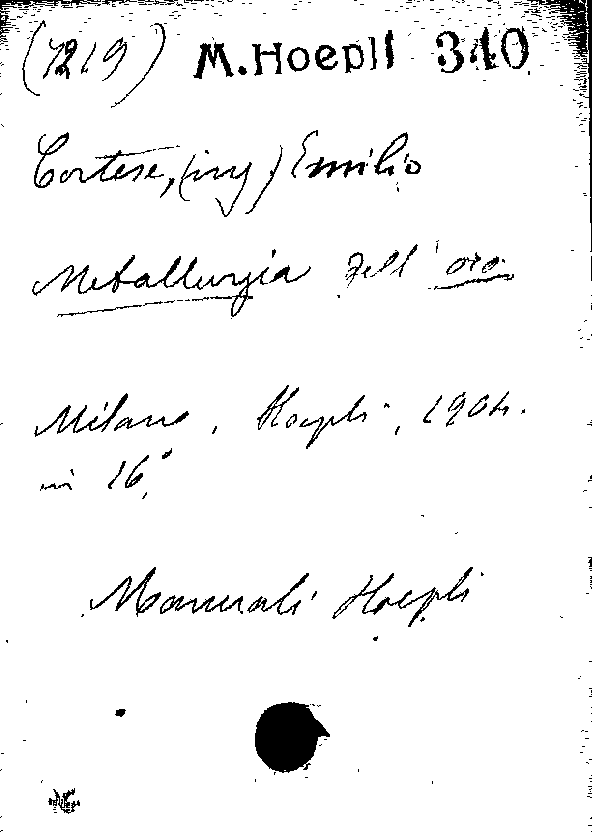 (7219) M. Hoepli 340
Cortese, (ing) Emilio
Metallurgia dell'oro
Milano, Hoepli, 1904.
in 16°.
Manuali Hoepli